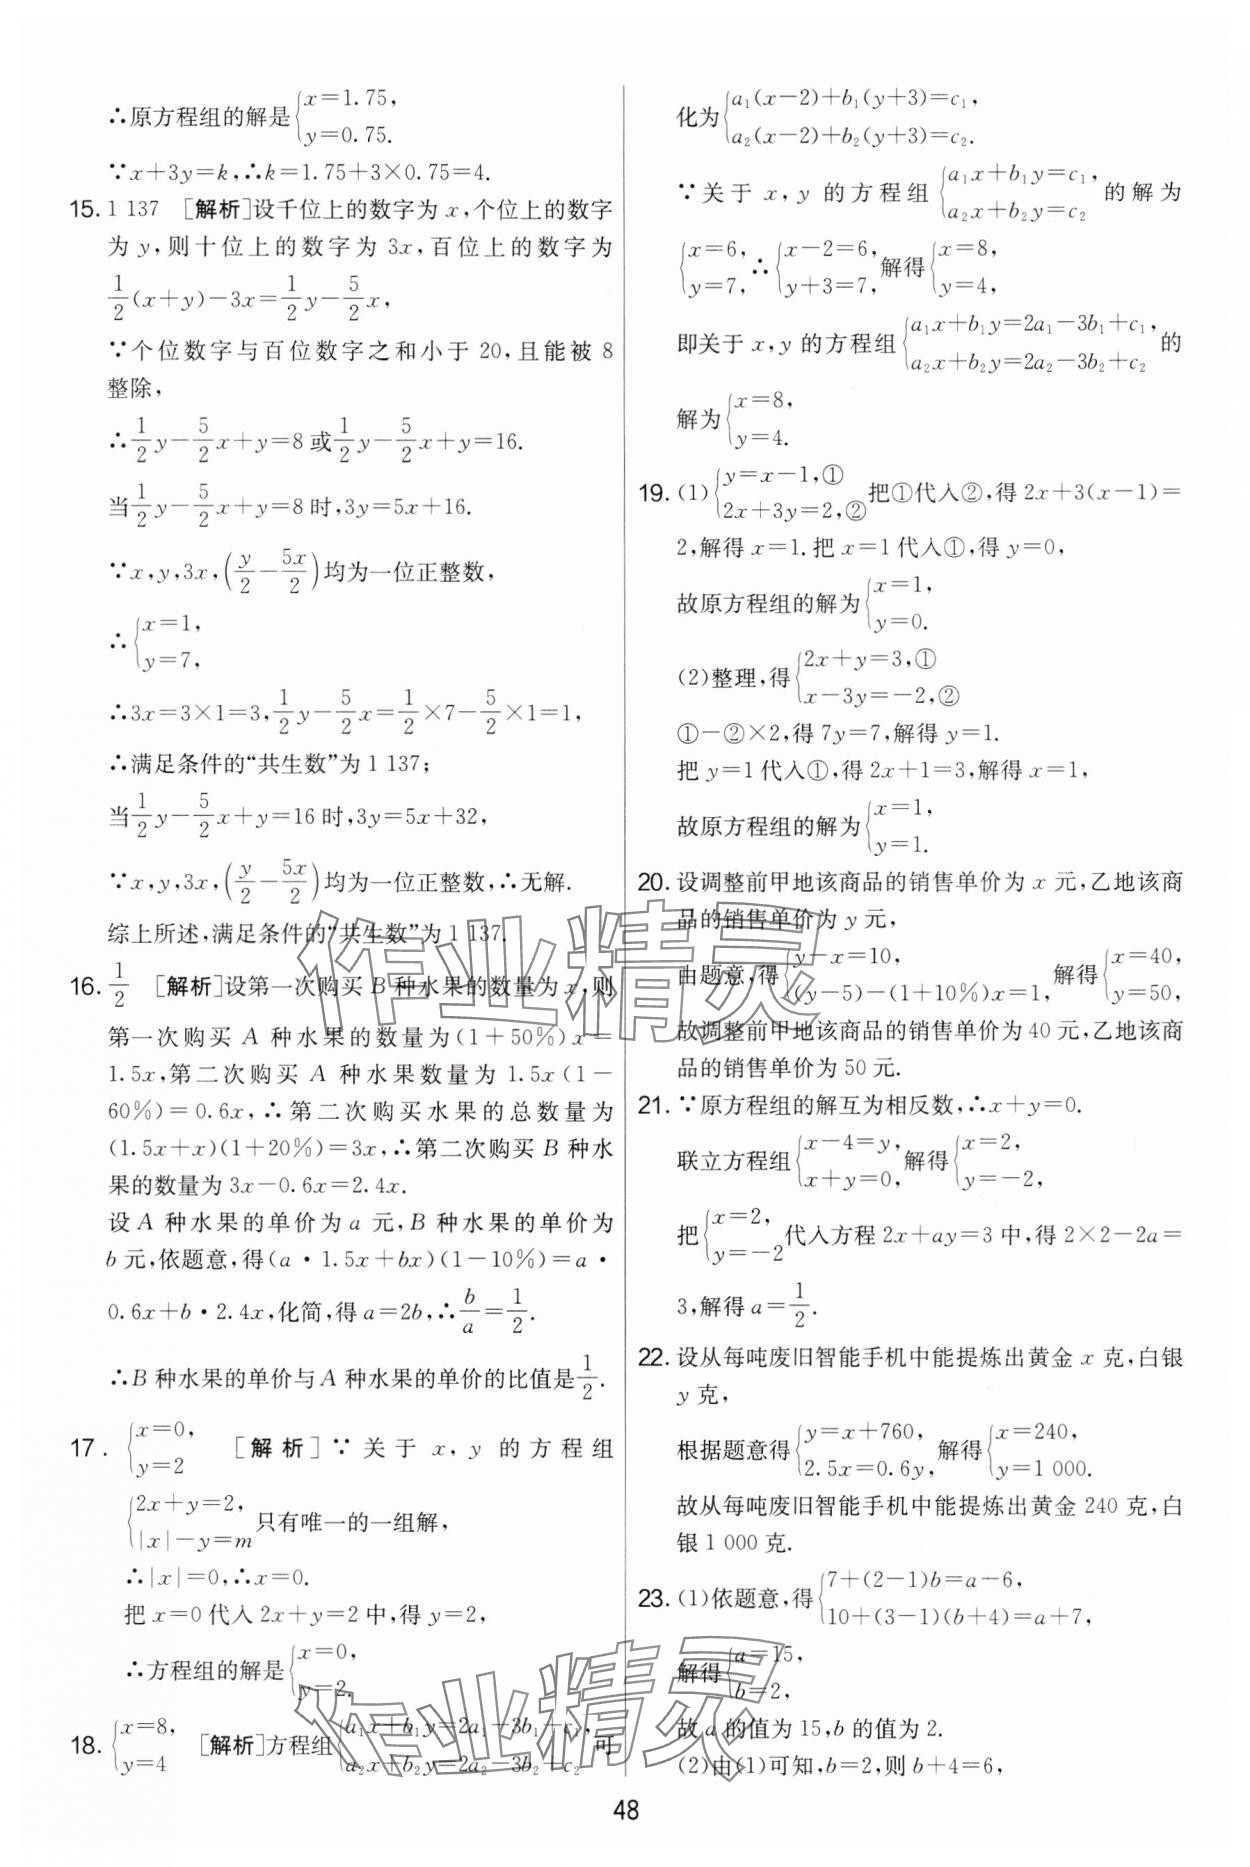 ∴原方程组的解是{x=1.75, y=0.75.
∵x+3y=k,∴k=1.75+3×0.75=4.
15. 1 137 [解析]设千位上的数字为 x,个位上的数字
为 y,则十位上的数字为 3x,百位上的数字为
1/2(x+y)-3x=1/2y-5/2x,
∵个位数字与百位数字之和小于 20,且能被 8
整除,
∴1/2y-5/2x+y=8或1/2y-5/2x+y=16.
当1/2y-5/2x+y=8时,3y=5x+16.
∵x,y,3x,(y/2-5x/2)均为一位正整数,
∴{x=1, y=7,
∴3x=3×1=3,1/2y-5/2x=1/2×7-5/2×1=1,
∴满足条件的“共生数”为1 137;
当1/2y-5/2x+y=16时,3y=5x+32,
∵x,y,3x,(y/2-5x/2)均为一位正整数,∴无解.
综上所述,满足条件的“共生数”为1 137.
16. 1/2 [解析]设第一次购买 B 种水果的数量为 x,则
第一次购买 A 种水果的数量为(1+50%)x=
1.5x,第二次购买 A 种水果数量为 1.5x(1-
60%)=0.6x,∴第二次购买水果的总数量为
(1.5x+x)(1+20%)=3x,∴第二次购买 B 种水
果的数量为 3x-0.6x=2.4x.
设 A 种水果的单价为 a 元,B 种水果的单价为
b 元,依题意,得(a·1.5x+bx)(1-10%)=a·
0.6x+b·2.4x,化简,得a=2b,∴b/a=1/2.
∴B 种水果的单价与A 种水果的单价的比值是1/2.
17. {x=0, y=2 [解析]∵关于 x, y 的方程组
{2x+y=2, |x|-y=m 只有唯一的一组解,
∴|x|=0,∴x=0.
把 x=0 代入 2x+y=2 中,得 y=2,
∴方程组的解是{x=0, y=2.
18. {x=8, y=4 [解析]方程组{a₁x+b₁y=2a₁-3b₁+c₁, a₂x+b₂y=2a₂-3b₂+c₂ 可
化为{a₁(x-2)+b₁(y+3)=c₁, a₂(x-2)+b₂(y+3)=c₂.
∵关于 x,y 的方程组{a₁x+b₁y=c₁, a₂x+b₂y=c₂ 的解为
{x=6, y=7, ∴{x-2=6, y+3=7, 解得{x=8, y=4,
即关于 x,y 的方程组{a₁x+b₁y=2a₁-3b₁+c₁, a₂x+b₂y=2a₂-3b₂+c₂ 的
解为{x=8, y=4.
19. (1){y=x-1,① 2x+3y=2,② 把①代入②,得 2x+3(x-1)=
2,解得 x=1. 把 x=1代入①,得 y=0,
故原方程组的解为{x=1, y=0.
(2)整理,得{2x+y=3,① x-3y=-2,②
①-②×2,得 7y=7,解得 y=1.
把 y=1代入①,得 2x+1=3,解得 x=1,
故原方程组的解为{x=1, y=1.
20. 设调整前甲地该商品的销售单价为 x 元,乙地该商
品的销售单价为 y 元,
由题意,得{y-x=10, (y-5)-(1+10%)x=1, 解得{x=40, y=50,
故调整前甲地该商品的销售单价为 40 元,乙地该商
品的销售单价为 50 元.
21. ∵原方程组的解互为相反数,∴x+y=0.
联立方程组{x-4=y, x+y=0, 解得{x=2, y=-2,
把{x=2, y=-2 代入方程 2x+ay=3 中,得 2×2-2a=
3,解得 a=1/2.
22. 设从每吨废旧智能手机中能提炼出黄金 x 克,白银
y 克,
根据题意得{y=x+760, 2.5x=0.6y, 解得{x=240, y=1 000.
故从每吨废旧智能手机中能提炼出黄金 240 克,白
银 1 000 克.
23. (1)依题意,得{7+(2-1)b=a-6, 10+(3-1)(b+4)=a+7,
解得{a=15, b=2,
故 a 的值为 15,b 的值为 2.
(2)由(1)可知,b=2,则 b+4=6,
48
作业精灵
作业精灵